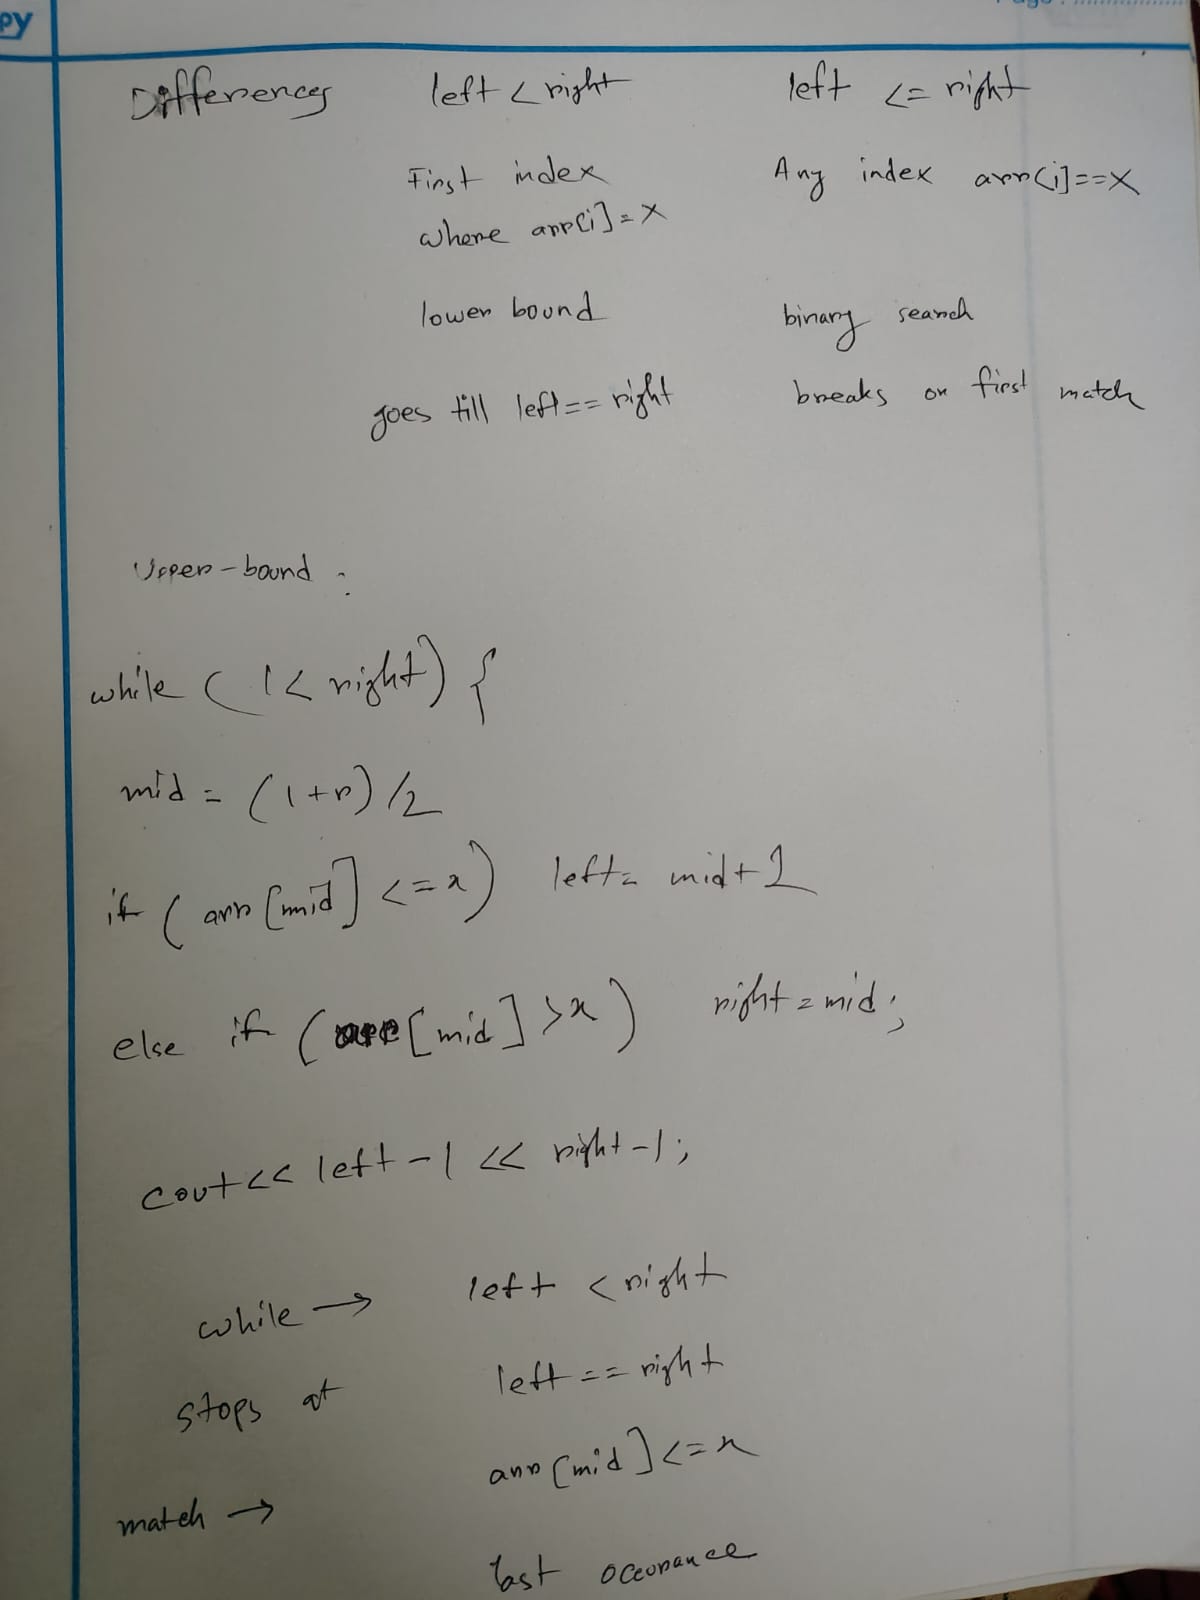 PY
Differences left < right left <= right
First index Any index arr[i]==X
where arr[i]=X
lower bound binary search
goes till left== right breaks on first match
Upper-bound :
while ( l< right) {
mid = (l+r)/2
if ( arr [mid] <=x) left= mid+1
else if ( arr [mid] >x) right = mid;
cout<< left-1 << right-1;
while → left < right
stops at left == right
arr [mid] <=x
match →
last occurance